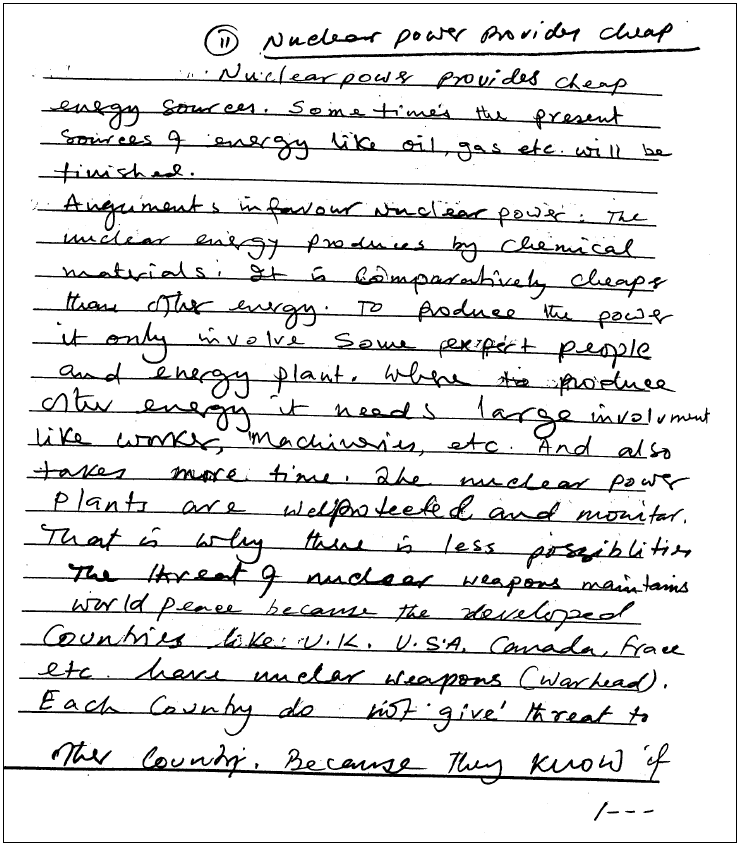 (ii) Nuclear power provides cheap
Nuclear power provides cheap
energy sources. Sometimes the present
sources of energy like oil, gas etc. will be
finished.
Anguments in favour Nuclear power: The
nuclear energy produces by chemical
materials. It is Comparatively cheaper
than other energy. To produce the power
it only involve Some expert people
and energy plant. Where to produce
other energy it needs large involvment
like worker, machineries, etc. And also
takes more time. The nuclear power
plants are wellprotected and monitar.
That is why there is less possiblities
The threat of nuclear weapons maintains
world peace because the developed
Countries like U.K. U.S.A, Canada, Frace
etc. have nuclar weapons (warhead).
Each Country do not give threat to
other Country. Because they know if
/---